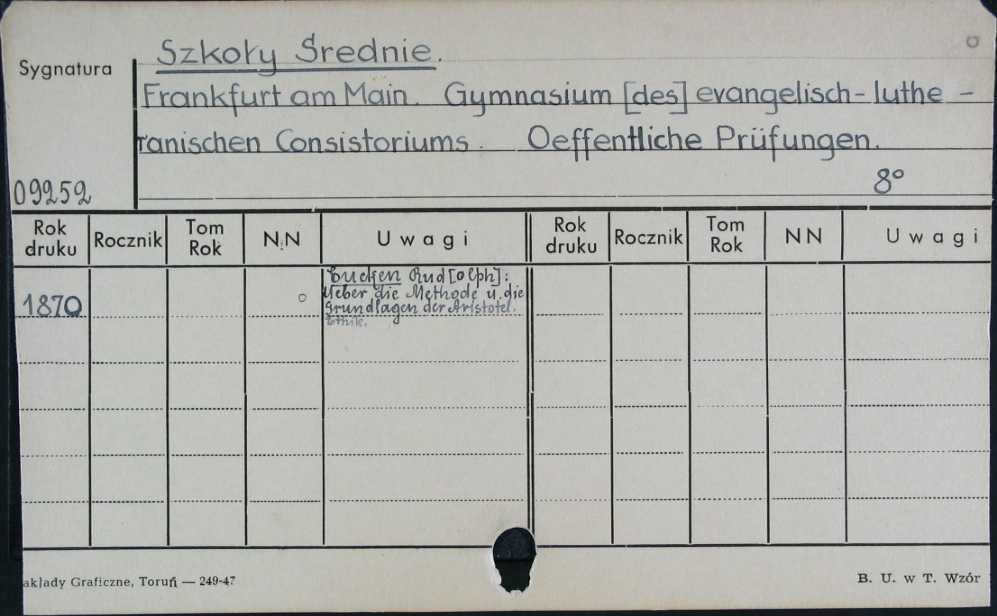 Szkoły Średnie.
Sygnatura
Frankfurt am Main. Gymnasium [des] evangelisch-luthe-
ranischen Consistoriums. Oeffentliche Prüfungen.
09252
8°
Rok druku Rocznik Tom Rok N.N Uwagi Rok druku Rocznik Tom Rok NN Uwagi
Eucken Rud[olph]:
1870
Ueber die Methode u. die
Grundlagen der Aristotel.
Ethik.
akłady Graficzne, Toruń — 249-47
B. U. w T. Wzór